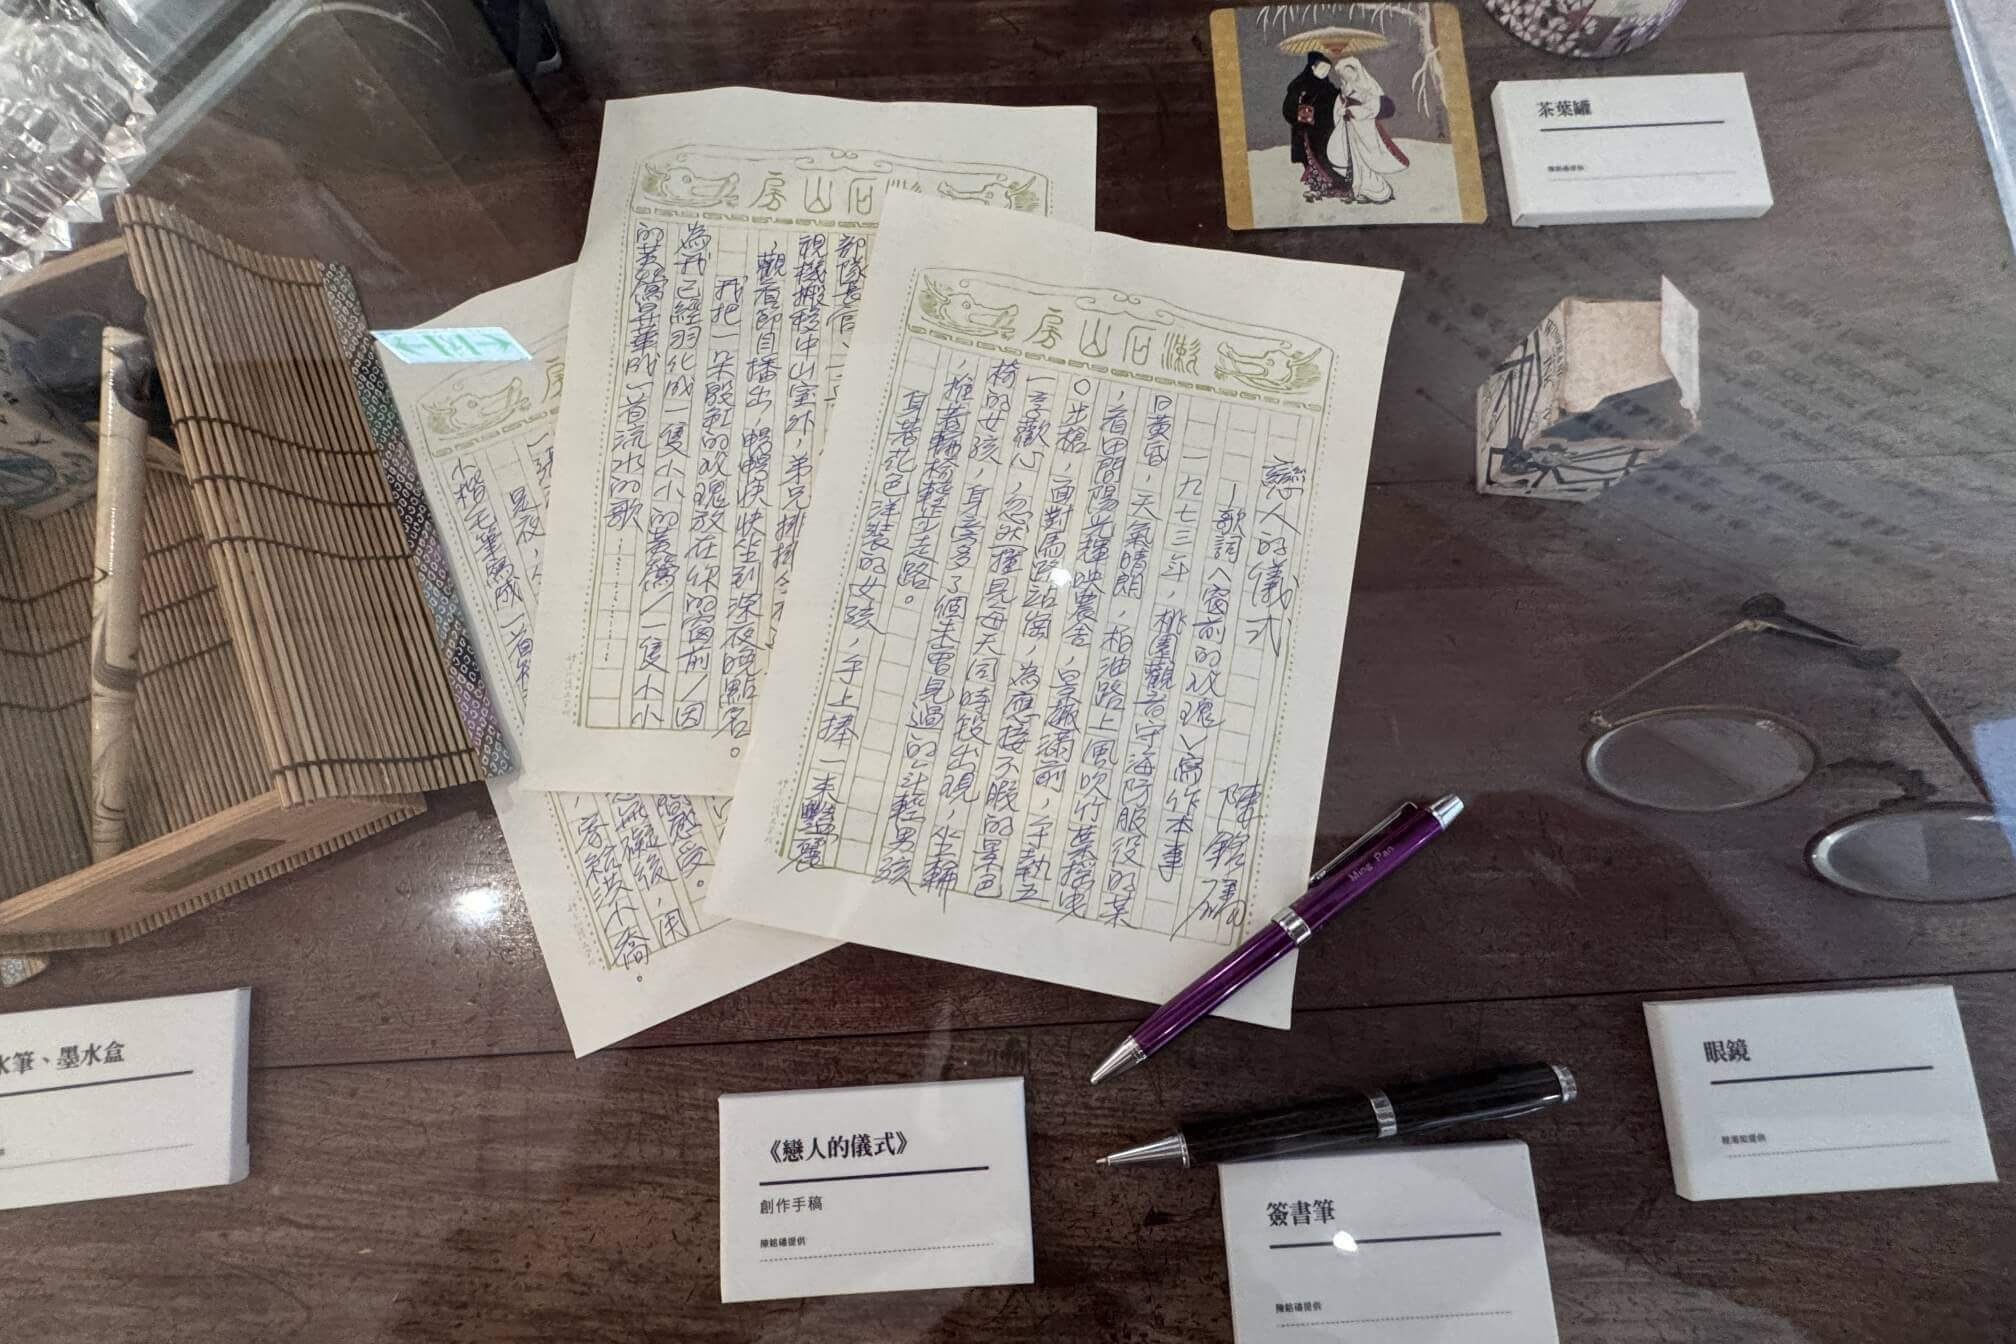 茶葉罐
陳銘磻提供
漱石山房
戀人的儀式
陳銘磻
－歌詞〈窗前的玫瑰〉寫作本事
一九七三年，桃園觀音守海防服役的某
日黃昏，天氣晴朗，柏油路上風吹竹葉搖曳
，看田間陽光輝映農舍，
步槍，面對馬路站崗，為應接不暇的景色
椅的女孩，身旁多了個未曾見過的年輕男孩
，推著輪椅輕步走路。
身著花色洋裝的女孩，手上捧一束豔麗
石山房
部隊長官、
視機搬移中山室外，弟兄排排
，觀看節目播出，暢暢快快坐到深夜晚點名。
我把一朵殷紅的玫瑰放在你的窗前／因
為我已經羽化成一隻小小的黃鶯／一隻小小
的黃鶯昇華成一首流水的歌
房
是夜，
小楷毛筆寫成一首
感受。
無礙後，用
，寄給洪小喬。
Ming Pan
水筆、墨水盒
《戀人的儀式》
創作手稿
陳銘磻提供
簽書筆
陳銘磻提供
眼鏡